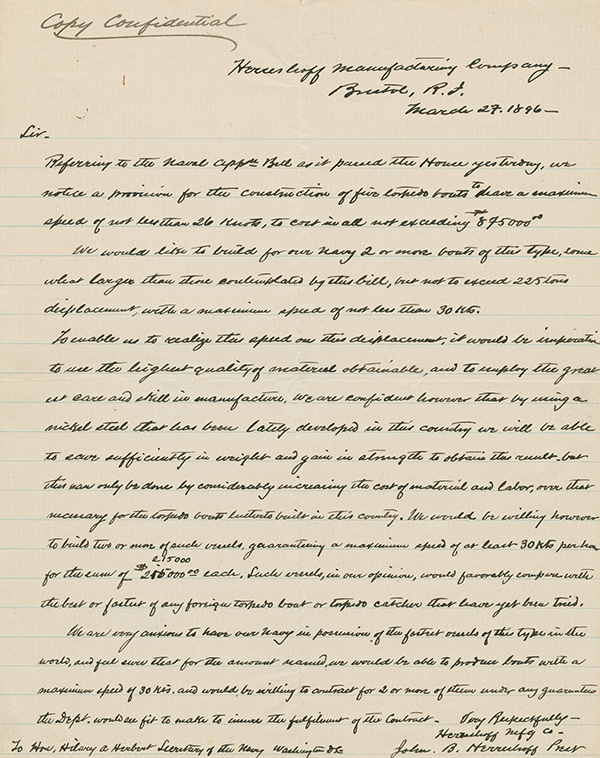 Copy Confidential
Herreshoff Manufacturing Company—
Bristol, R.I.
March 27. 1896—
Sir-
Referring to the Naval Appn Bill as it passed the House yesterday, we
notice a provision for the construction of five torpedo boats to have a maximum
speed of not less than 26 Knots, to cost in all not exceeding $875000.00
We would like to build for our Navy 2 or more boats of this type, some
what larger than those contemplated by this bill, but not to exceed 225 tons
displacement, with a maximum speed of not less than 30 Kts.
To enable us to realize this speed on this displacement, it would be imperative
to use the highest quality of material obtainable, and to employ the great
est care and skill in manufacture, we are confident however that by using a
nickel steel that has been lately developed in this country we will be able
to save sufficiently in weight and gain in strength to obtain this result. but
this can only be done by considerably increasing the cost of material and labor, over that
necessary for the torpedo boats hitherto built in this county. We would be willing however
to build two or more of such vessels, guaranteeing a maximum speed of at least 30 Kts per hour
215000
for the sum of $ 00 each, Such vessels, in our opinion, would favorably compare with
the best or fastest of any foreign torpedo boat or torpedo catcher that have yet been tried.
We are very anxious to have our Navy in possession of the fastest vessels of this type in the
world, and feel sure that for the amount named, we would be able to produce boats with a
maximum speed of 30 Kts. and would be willing to contract for 2 or more of them under any guarantees
the Dept. would see fit to make to insure the fulfilment of the Contract.- Very Respectfully—
Herreshoff Mfg Co-
To Hon. Hilary A Herbert Secretary of the Navy Washington DC John. B. Herreshoff Prest